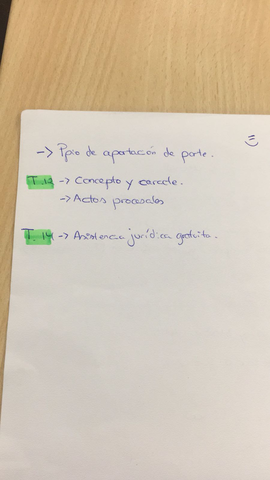 -> Ppio de aportación de parte.
T.12 -> Concepto y caracte.
-> Actos procesales
T.14 -> Asistencia jurídica gratuita.